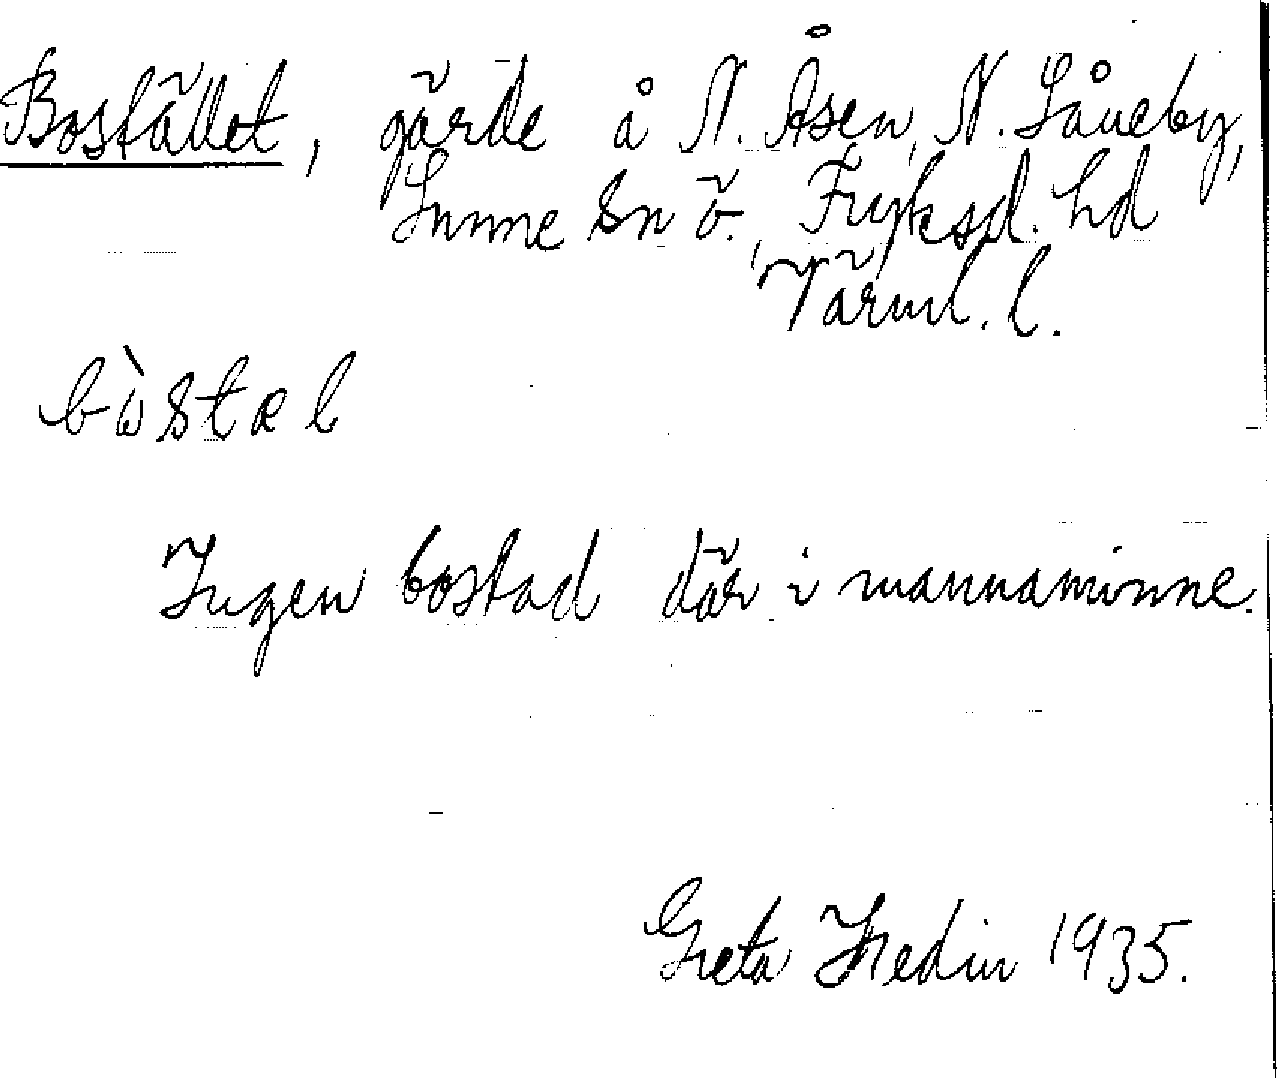 Bostället, gärde å N. Åsen, N. Låneby,
Sunne sn Ö. Fryksd. hd
Värml. l.
bὼstæl
Ingen bostad där i mannaminne.
Greta Hedin 1935.